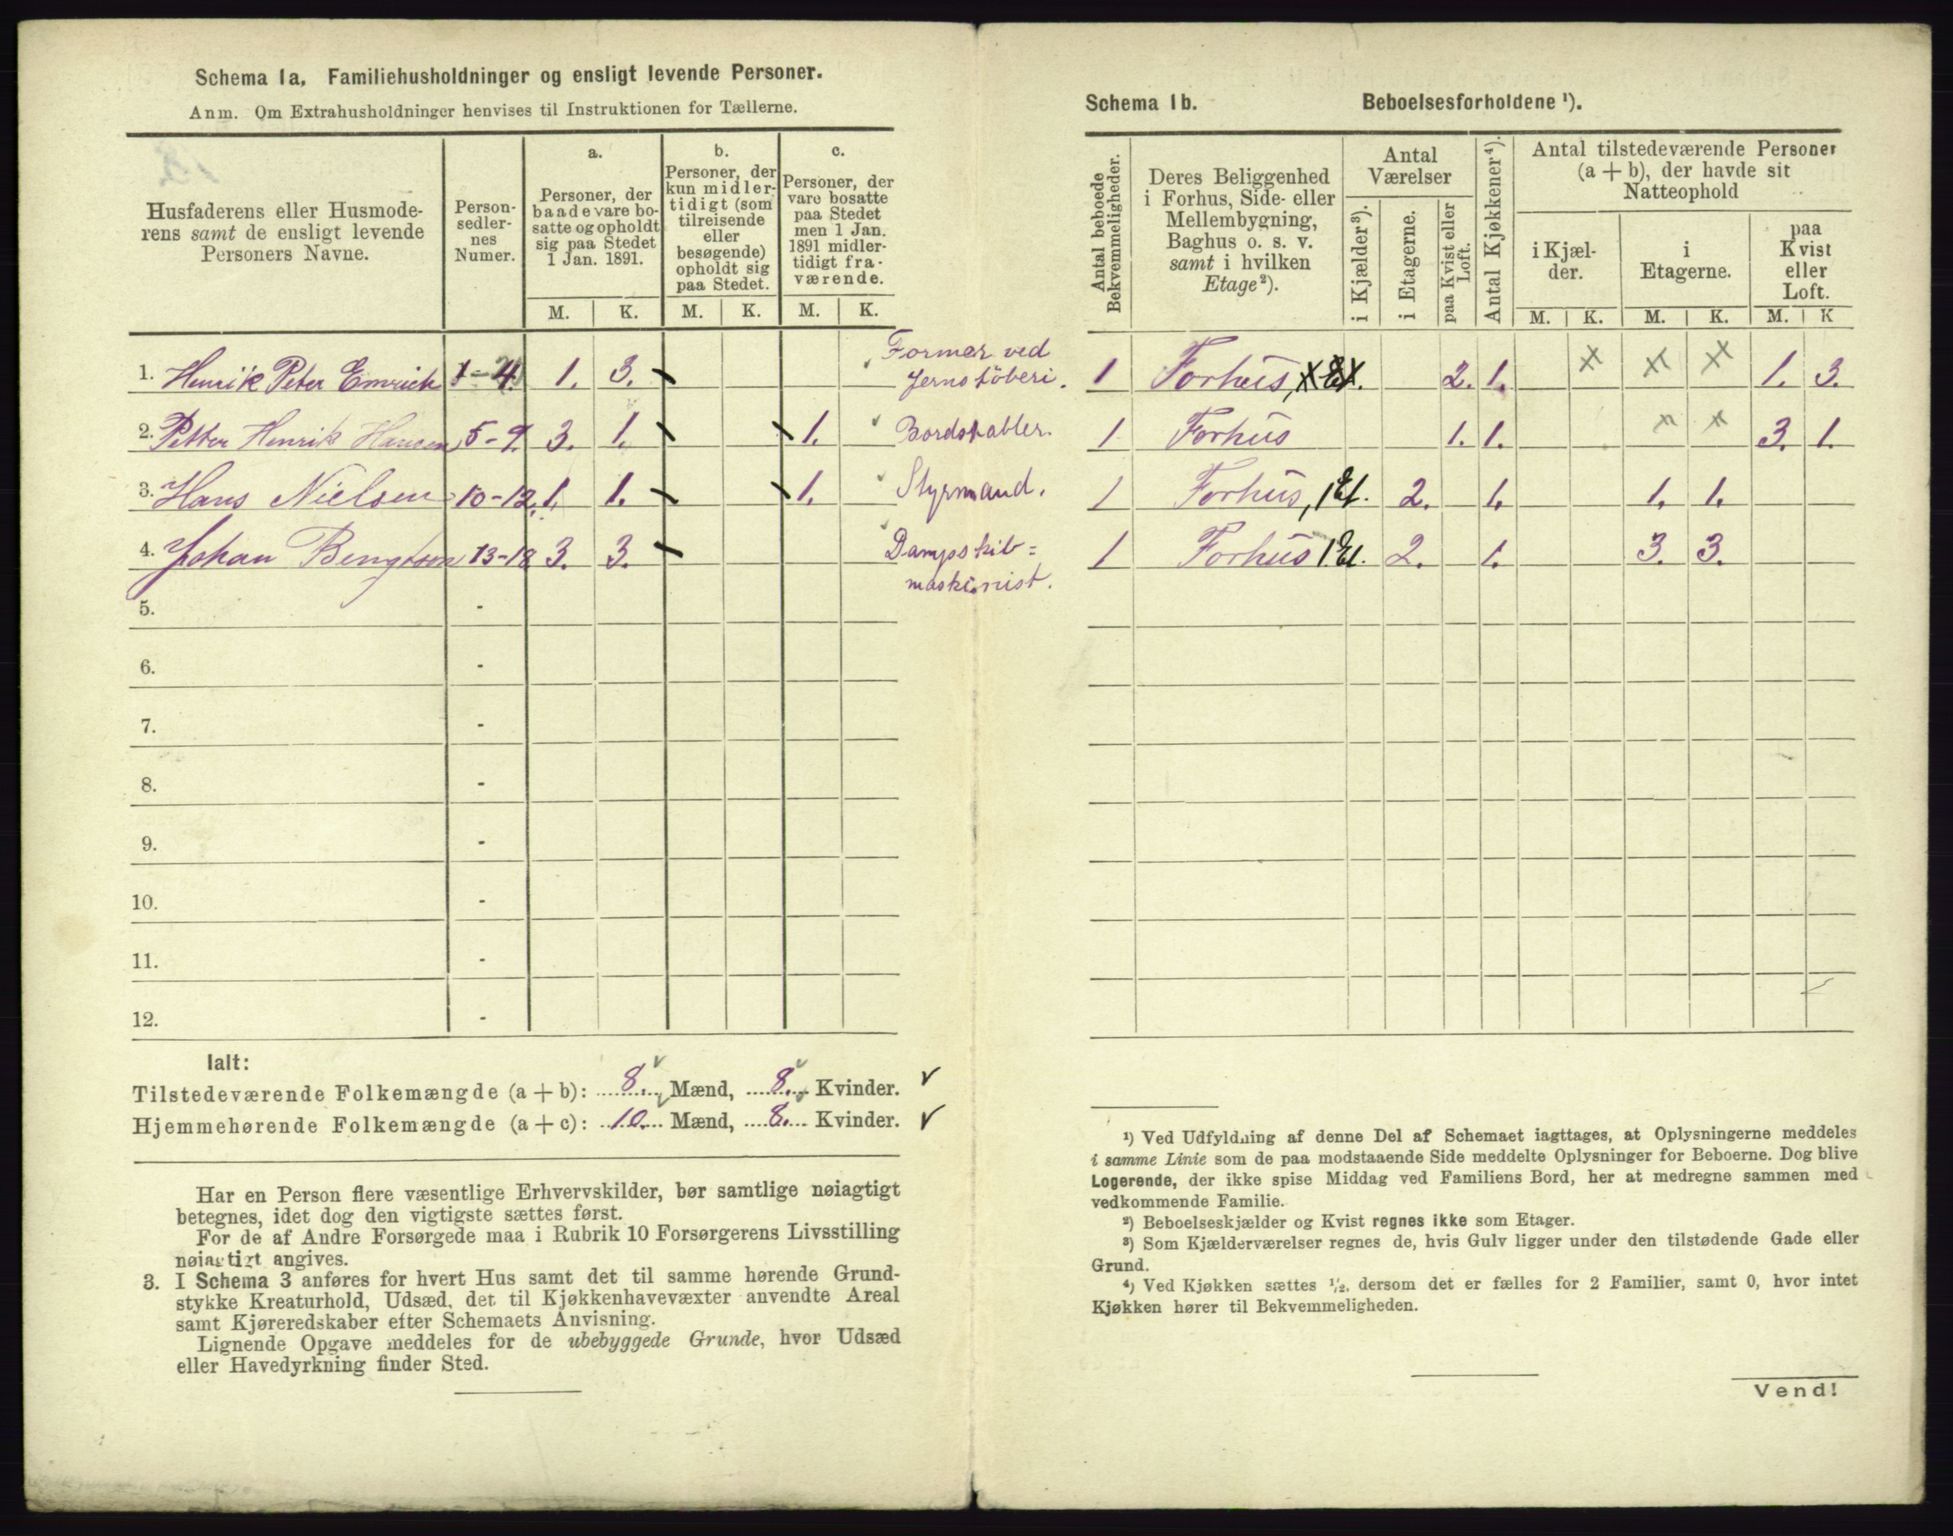 Schema 1a. Familiehusholdninger og ensligt levende Personer.
Anm. Om Extrahusholdninger henvises til Instruktionen for Tællerne.
Husfaderens eller Husmode-
rens samt de ensligt levende
Personers Navne.
Person-
sedler-
nes
Numer.
a.
Personer, der
baade vare bo-
satte og opholdt
sig paa Stedet
1 Jan. 1891.
b.
Personer, der
kun midler-
tidigt (som
tilreisende
eller
besøgende)
opholdt sig
paa Stedet.
c.
Personer, der
vare bosatte
paa Stedet
men 1 Jan.
1891 midler-
tidigt fra-
værende.
M. K. M. K. M. K.
1. Henrik Peter Emrich 1-4. 1. 3. Former ved
Jernstöberi.
2. Petter Henrik Hansen 5-9. 3. 1. 1. Bordstabler.
3. Hans Nielsen 10-12. 1. 1. 1. Styrmand.
4. Johan Bengtson 13-18 3. 3. Dampskib=
maskinist.
5. -
6. -
7. -
8. -
9. -
10. -
11. -
12. -
Ialt:
Tilstedeværende Folkemængde (a + b): 8. Mænd, 8. Kvinder.
Hjemmehørende Folkemængde (a + c): 10. Mænd, 8. Kvinder.
Har en Person flere væsentlige Erhvervskilder, bør samtlige nøiagtigt
betegnes, idet dog den vigtigste sættes først.
For de af Andre Forsørgede maa i Rubrik 10 Forsørgerens Livsstilling
nøiagtigt angives.
3. I Schema 3 anføres for hvert Hus samt det til samme hørende Grund-
stykke Kreaturhold, Udsæd, det til Kjøkkenhavevæxter anvendte Areal
samt Kjøreredskaber efter Schemaets Anvisning.
Lignende Opgave meddeles for de ubebyggede Grunde, hvor Udsæd
eller Havedyrkning finder Sted.
Schema 1b. Beboelsesforholdene ¹).
Antal beboede
Bekvemmeligheder.
Deres Beliggenhed
i Forhus, Side- eller
Mellembygning,
Baghus o. s. v.
samt i hvilken
Etage²).
Antal
Værelser
i Kjælder³).
i Etagerne.
paa Kvist eller
Loft.
Antal Kjøkkener⁴).
Antal tilstedeværende Personer
(a + b), der havde sit
Natteophold
i Kjæl-
der.
i
Etagerne.
paa
Kvist
eller
Loft.
M. K. M. K. M. K
1 Forhus, 2. 1. 1. 3.
1 Forhus 1. 1. 3. 1.
1 Forhus, 1 Et. 2. 1. 1. 1.
1 Forhus 1 Et. 2. 1. 3. 3.
¹) Ved Udfyldning af denne Del af Schemaet iagttages, at Oplysningerne meddeles
i samme Linie som de paa modstaaende Side meddelte Oplysninger for Beboerne. Dog blive
Logerende, der ikke spise Middag ved Familiens Bord, her at medregne sammen med
vedkommende Familie.
²) Beboelseskjælder og Kvist regnes ikke som Etager.
³) Som Kjælderværelser regnes de, hvis Gulv ligger under den tilstødende Gade eller
Grund.
⁴) Ved Kjøkken sættes ½, dersom det er fælles for 2 Familier, samt 0, hvor intet
Kjøkken hører til Bekvemmeligheden.
Vend!